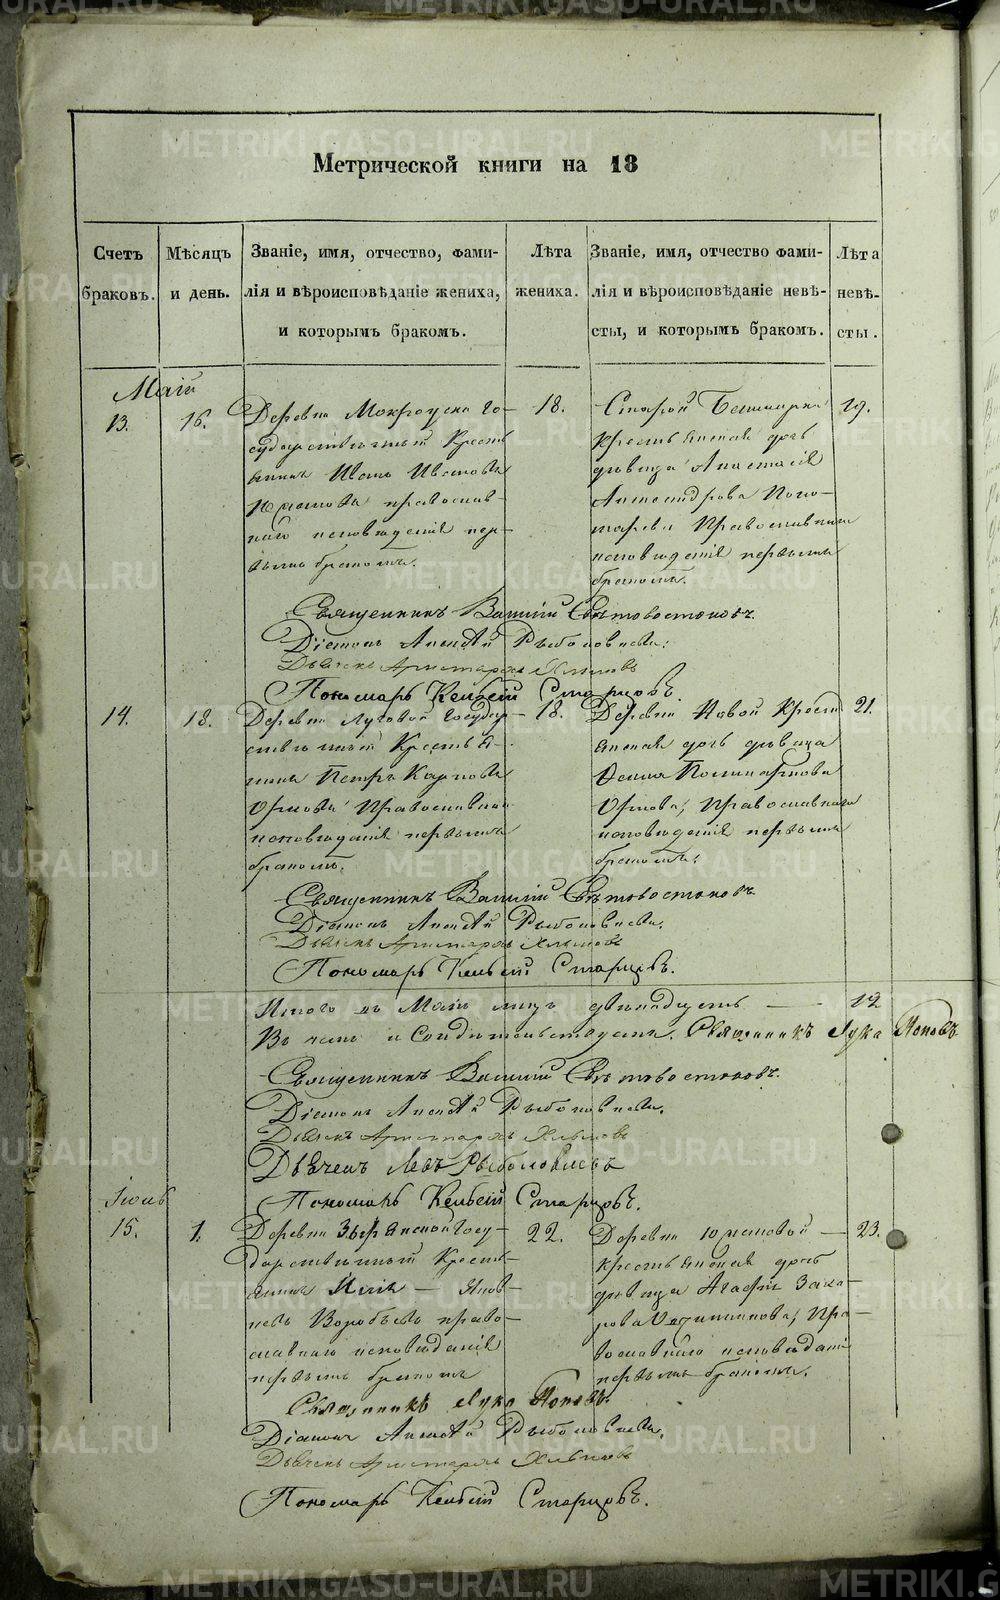 Метрической книги на 18
Счетъ браковъ.
Мѣсяцъ и день.
Званіе, имя, отчество, фами-
лія и вѣроисповѣданіе жениха,
и которымъ бракомъ.
Лѣта
жениха.
Званіе, имя, отчество фами-
лія и вѣроисповѣданіе невѣ-
сты, и которымъ бракомъ.
Лѣта
невѣ-
сты.
Май
13. 16.
Деревни го-
сударственный Кресть
янинъ Иванъ Ивановъ
православ-
наго исповѣданія пер-
вымъ бракомъ.
18.
Старой Башкарки
крестьянская дочь
дѣвица Анастасія
Александрова Поно-
марева Православнаго
исповѣданія первымъ
бракомъ.
19.
Священникъ Василій Свѣтовостоковъ.
Діаконъ Алексѣй Рыболовлевъ.
Дьячекъ Аристархъ Хлыновъ
Пономарь Старцовъ.
14. 18.
Деревни Луговой Государ-
ственный Крестья-
нинъ Петръ Карповъ
Православнаго
исповѣданія первымъ
бракомъ.
18.
Деревни Новой Кресть
янская дочь дѣвица
Православнаго
исповѣданія первымъ
бракомъ.
21.
Священникъ Василій Свѣтовостоковъ.
Діаконъ Алексѣй Рыболовлевъ.
Дьячекъ Аристархъ Хлыновъ
Пономарь Старцовъ.
Итого въ Маѣ м-цѣ двѣнадцать — 12
Въ чемъ и Свидѣтельствуемъ. Священникъ Лука Поповъ
Священникъ Василій Свѣтовостоковъ.
Діаконъ Алексѣй Рыболовлевъ.
Дьячекъ Аристархъ Хлыновъ
Дьячекъ Левъ Рыболовлевъ
Пономарь Старцовъ.
Іюль
15. 1.
Деревни Зырянской Госу-
дарственный Кресть-
янинъ Илія — Яков-
левъ Воробьевъ право-
славнаго исповѣданія
первымъ бракомъ
22.
Деревни
крестьянская дочь
дѣвица Агафія Заха-
рова Пра-
вославнаго исповѣданія
первымъ бракомъ.
23.
Священникъ Лука Поповъ.
Діаконъ Алексѣй Рыболовлевъ.
Дьячекъ Аристархъ Хлыновъ
Пономарь Старцовъ.
METRIKI.GASO-URAL.RU